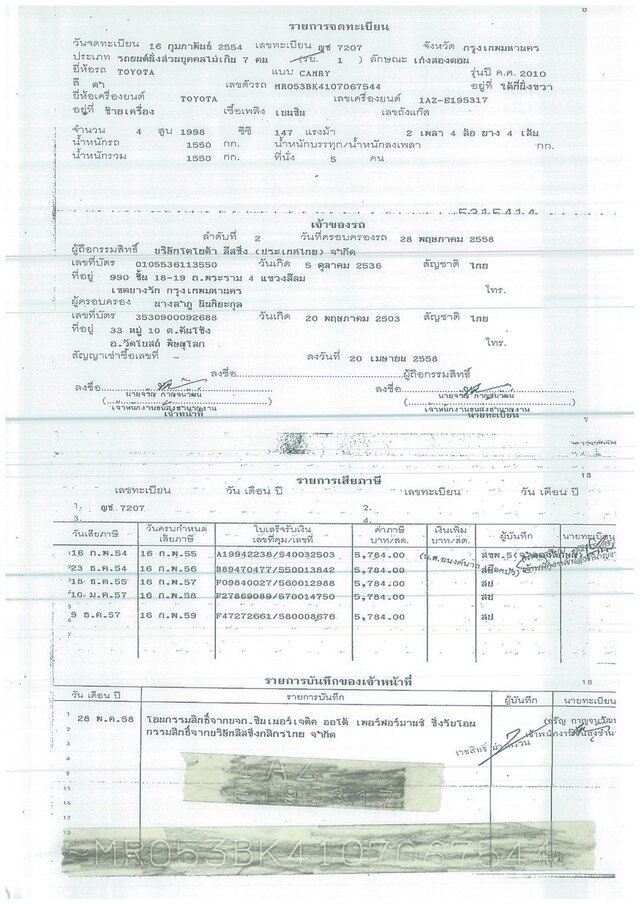 รายการจดทะเบียน
วันจดทะเบียน 16 กุมภาพันธ์ 2554 เลขทะเบียน ญช 7207 จังหวัด กรุงเทพมหานคร
ประเภท รถยนต์นั่งส่วนบุคคลไม่เกิน 7 คน (รย. 1 ) ลักษณะ เก๋งสองตอน
ยี่ห้อรถ TOYOTA แบบ CAMRY รุ่นปี ค.ศ. 2010
สี ดำ เลขตัวรถ MR053BK4107067544 อยู่ที่ ใต้ที่นั่งขวา
ยี่ห้อเครื่องยนต์ TOYOTA เลขเครื่องยนต์ 1AZ-E195317
อยู่ที่ ซ้ายเครื่อง เชื้อเพลิง เบนซิน เลขถังแก๊ส
จำนวน 4 สูบ 1998 ซีซี 147 แรงม้า 2 เพลา 4 ล้อ ยาง 4 เส้น
น้ำหนักรถ 1550 กก. น้ำหนักบรรทุก/น้ำหนักลงเพลา กก.
น้ำหนักรวม 1550 กก. ที่นั่ง 5 คน
5315414
เจ้าของรถ
ลำดับที่ 2 วันที่ครอบครองรถ 28 พฤษภาคม 2558
ผู้ถือกรรมสิทธิ์ บริษัทโตโยต้า ลีสซิ่ง (ประเทศไทย) จำกัด
เลขที่บัตร 0105536113550 วันเกิด 5 ตุลาคม 2536 สัญชาติ ไทย
ที่อยู่ 990 ชั้น 18-19 ถ.พระราม 4 แขวงสีลม
เขตบางรัก กรุงเทพมหานคร โทร.
ผู้ครอบครอง
เลขที่บัตร 3530900092688 วันเกิด 20 พฤษภาคม 2503 สัญชาติ ไทย
ที่อยู่ 33 หมู่ 10 ต.คันโช้ง
อ.วัดโบสถ์ พิษณุโลก โทร.
สัญญาเช่าซื้อเลขที่ - ลงวันที่ 20 เมษายน 2558
ลงชื่อ ผู้ถือกรรมสิทธิ์
ลงชื่อ ลงชื่อ
นายจรัญ กาญจนวัฒน์ นายจรัญ กาญจนวัฒน์
เจ้าพนักงานขนส่งชำนาญงาน เจ้าพนักงานขนส่งชำนาญงาน
เจ้าหน้าที่ นายทะเบียน
7
18
รายการเสียภาษี
เลขทะเบียน วัน เดือน ปี เลขทะเบียน วัน เดือน ปี
1. ญช. 7207 2.
3. 4.
วันเสียภาษี วันครบกำหนดเสียภาษี ใบเสร็จรับเงิน เลขที่คุม/เลขที่ ค่าภาษี บาท/สต. เงินเพิ่ม บาท/สต. ผู้บันทึก นายทะเบียน
16 ก.พ.54 16 ก.พ.55 A19942238/540032503 5,784.00 สขพ.5
23 ธ.ค.54 16 ก.พ.56 B89470477/550013842 5,784.00
18 ธ.ค.55 16 ก.พ.57 F09840027/560012988 5,784.00 สป
10 ม.ค.57 16 ก.พ.58 F27869089/570014750 5,784.00 สป
9 ธ.ค.57 16 ก.พ.59 F47272661/580008676 5,784.00 สป
รายการบันทึกของเจ้าหน้าที่
18
วัน เดือน ปี รายการบันทึก ผู้บันทึก นายทะเบียน
28 พ.ค.58 โอนกรรมสิทธิ์จากบจก.ซินเนอร์เจติค ออโต้ เพอร์ฟอร์มานซ์ ซึ่งรับโอน
กรรมสิทธิ์จากบริษัทลีสซิ่งกสิกรไทย จำกัด
1AZ
E195317
MR053BK4107067544